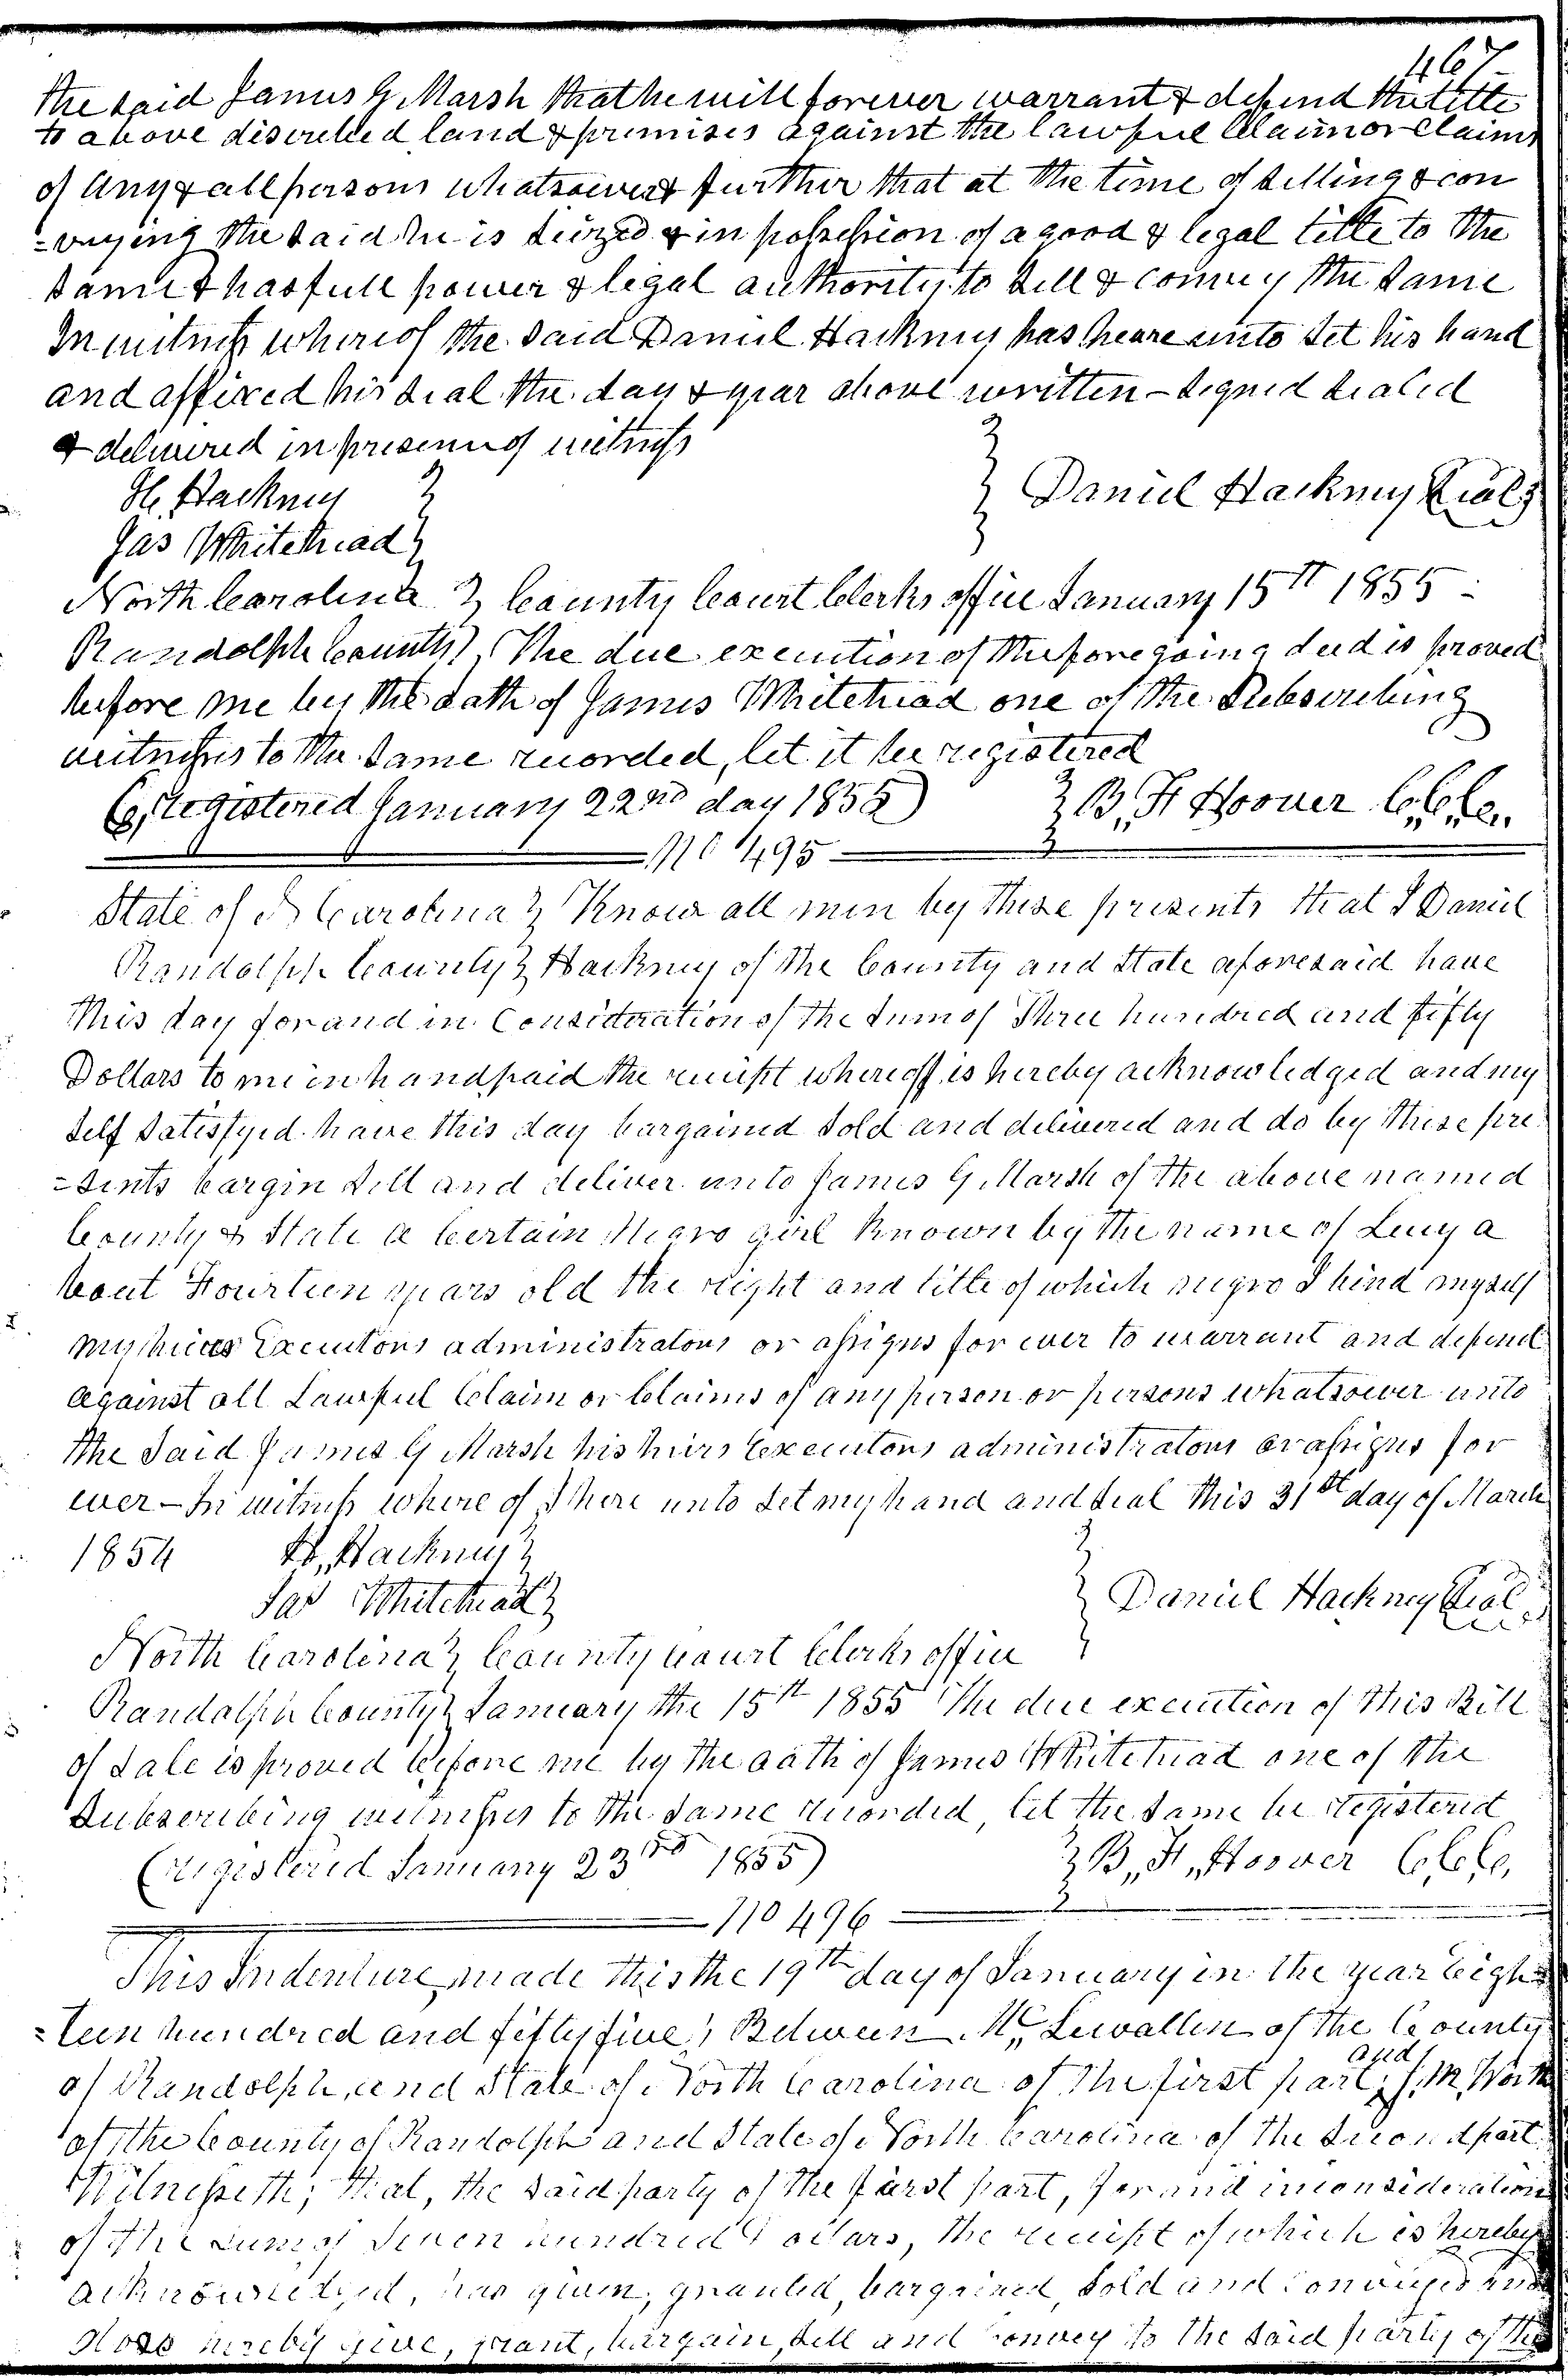 467
the said James G Marsh that he will forever warrant & defend the title
to above discribed land & premises against the lawful Claim or Claims
of any & all persons whatsoever & further that at the time of selling & con
=veying the said he is seized & in possession of a good & legal title to the
same & has full power & legal authority to sell & convey the same
In witness whereof the said Daniel Hackney has heare unto set his hand
and affixed his seal the day & year above written – signed sealed
& delivered in presence of witness
H. Hackney
Jas Whitehead
Daniel Hackney Seal
North Carolina County Court Clerks office January 15th 1855
Randolph County The due execution of the foregoing deed is proved
before me by the oath of James Whitehead one of the Subscribing
witnesses to the same recorded, let it be registered
(Registered January 22nd day 1855)
B, F Hoover C,C,C,
No 495
State of N Carolina Know all men by these presents that I Daniel
Randolph County Hackney of the County and State aforesaid have
this day for and in Consideration of the sum of Three hundred and fifty
Dollars to me in hand paid the receipt whereoff is hereby acknowledged and my
self satisfyed have this day bargained sold and delivered and do by these pre
=sents bargin sell and deliver unto James G Marsh of the above named
County & State a Certain Negro girl Known by the name of Lucy a
bout Fourteen years old the right and title of which negro I bind myself
my heirs Executors administrators or assigns for ever to warrant and defend
against all Lawful Claim or Claims of any person or persons whatsoever unto
the said James G Marsh his heirs Executors administrators or assigns for
ever – In witness where of I here unto set my hand and seal this 31st day of March
1854 H, Hackney
Jas Whitehead
Daniel Hackney Seal
North Carolina County court Clerks office
Randolph County January the 15th 1855 The due execution of this Bill
of sale is proved before me by the oath of James Whitehead one of the
Subscribing witnesses to the same recorded, let the same be registered
(registered January 23rd 1855)
B,, F,, Hoover C,C,C,
no 496
This Indenture, made this the 19th day of January in the year Eigh
=teen hundred and fifty five; Between Mc,, Lewallen of the County
of Randolph, and State of North Carolina of the first part; and J. M, Worth
of the County of Randolph and State of North Carolina of the Second part
Witnesseth; that, the said party of the first part, for and in consideration
of the sum of Seven hundred Dollars, the receipt of which is hereby
acknowledged, has given, granted, bargained, sold and Conveyed and
does hereby give, grant, bargain, sell and Convey to the said party of the